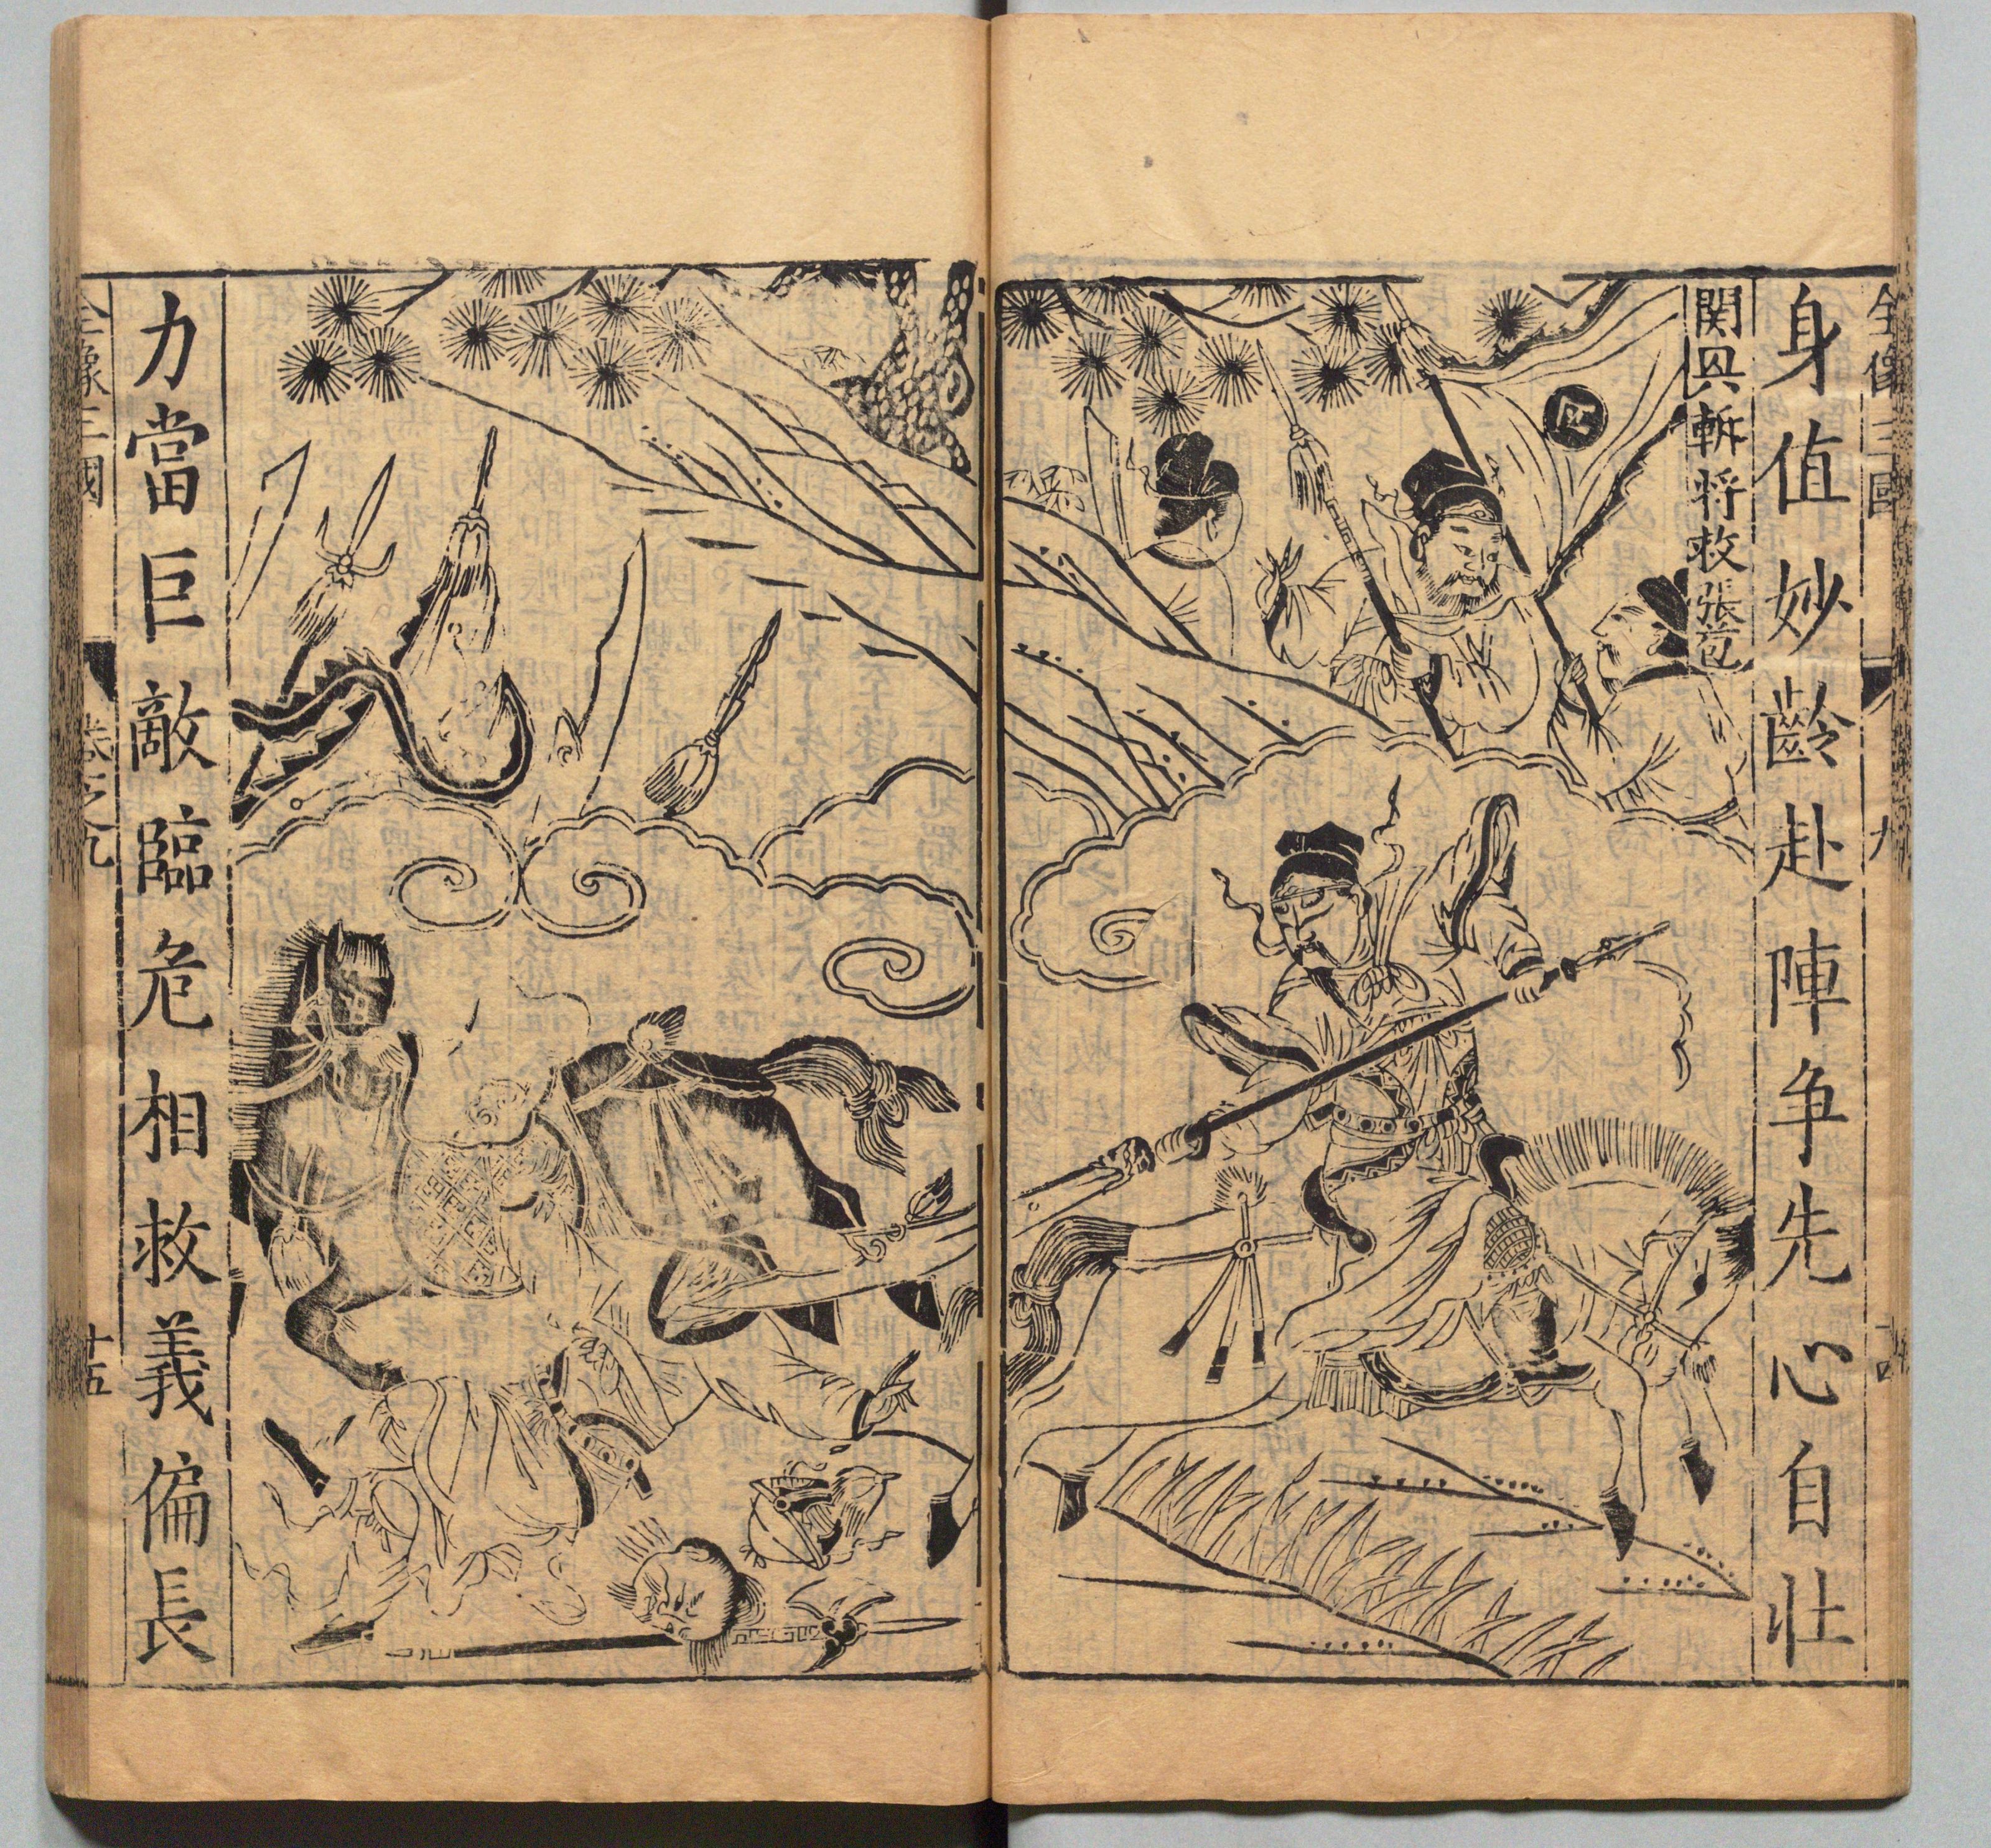 全像三國
身值妙齡赴陣爭先心自壮
関兴斬将救張苞
力當巨敵臨危相救義偏長
全像三國
卷之九
十五